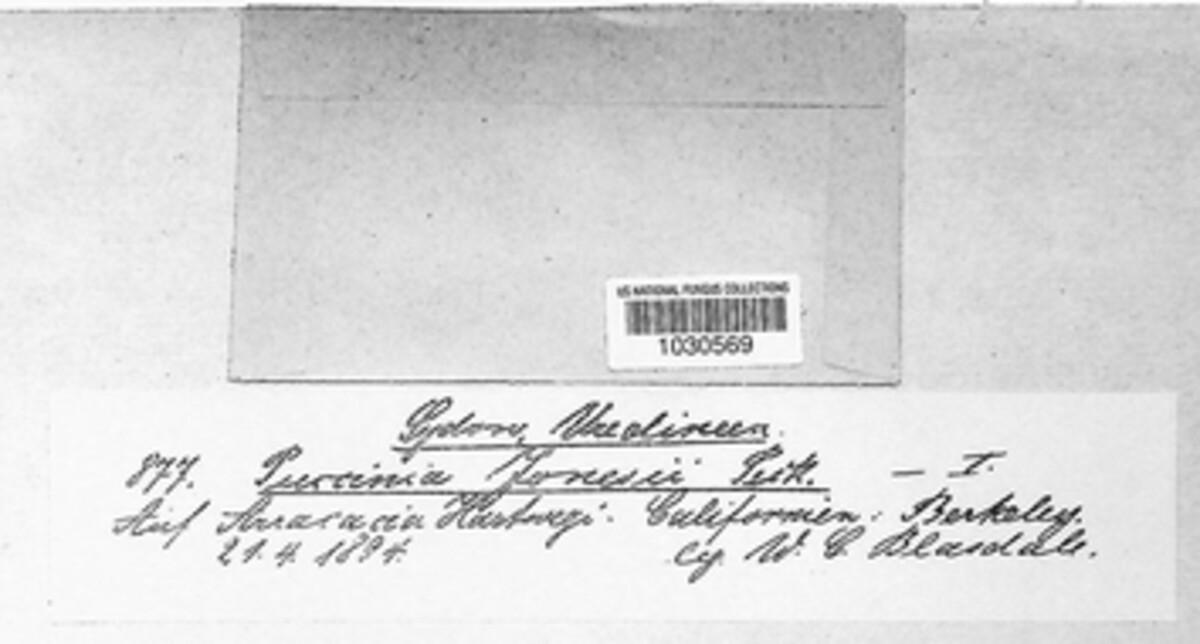 US NATIONAL FUNGUS COLLECTIONS
1030569
Sydow, Uredineen.
877. Puccinia Jonesii Peck. – I.
Auf Arracacia Hartwegi. Californien: Berkeley.
21.4.1894. lg. W. C. Blasdale.